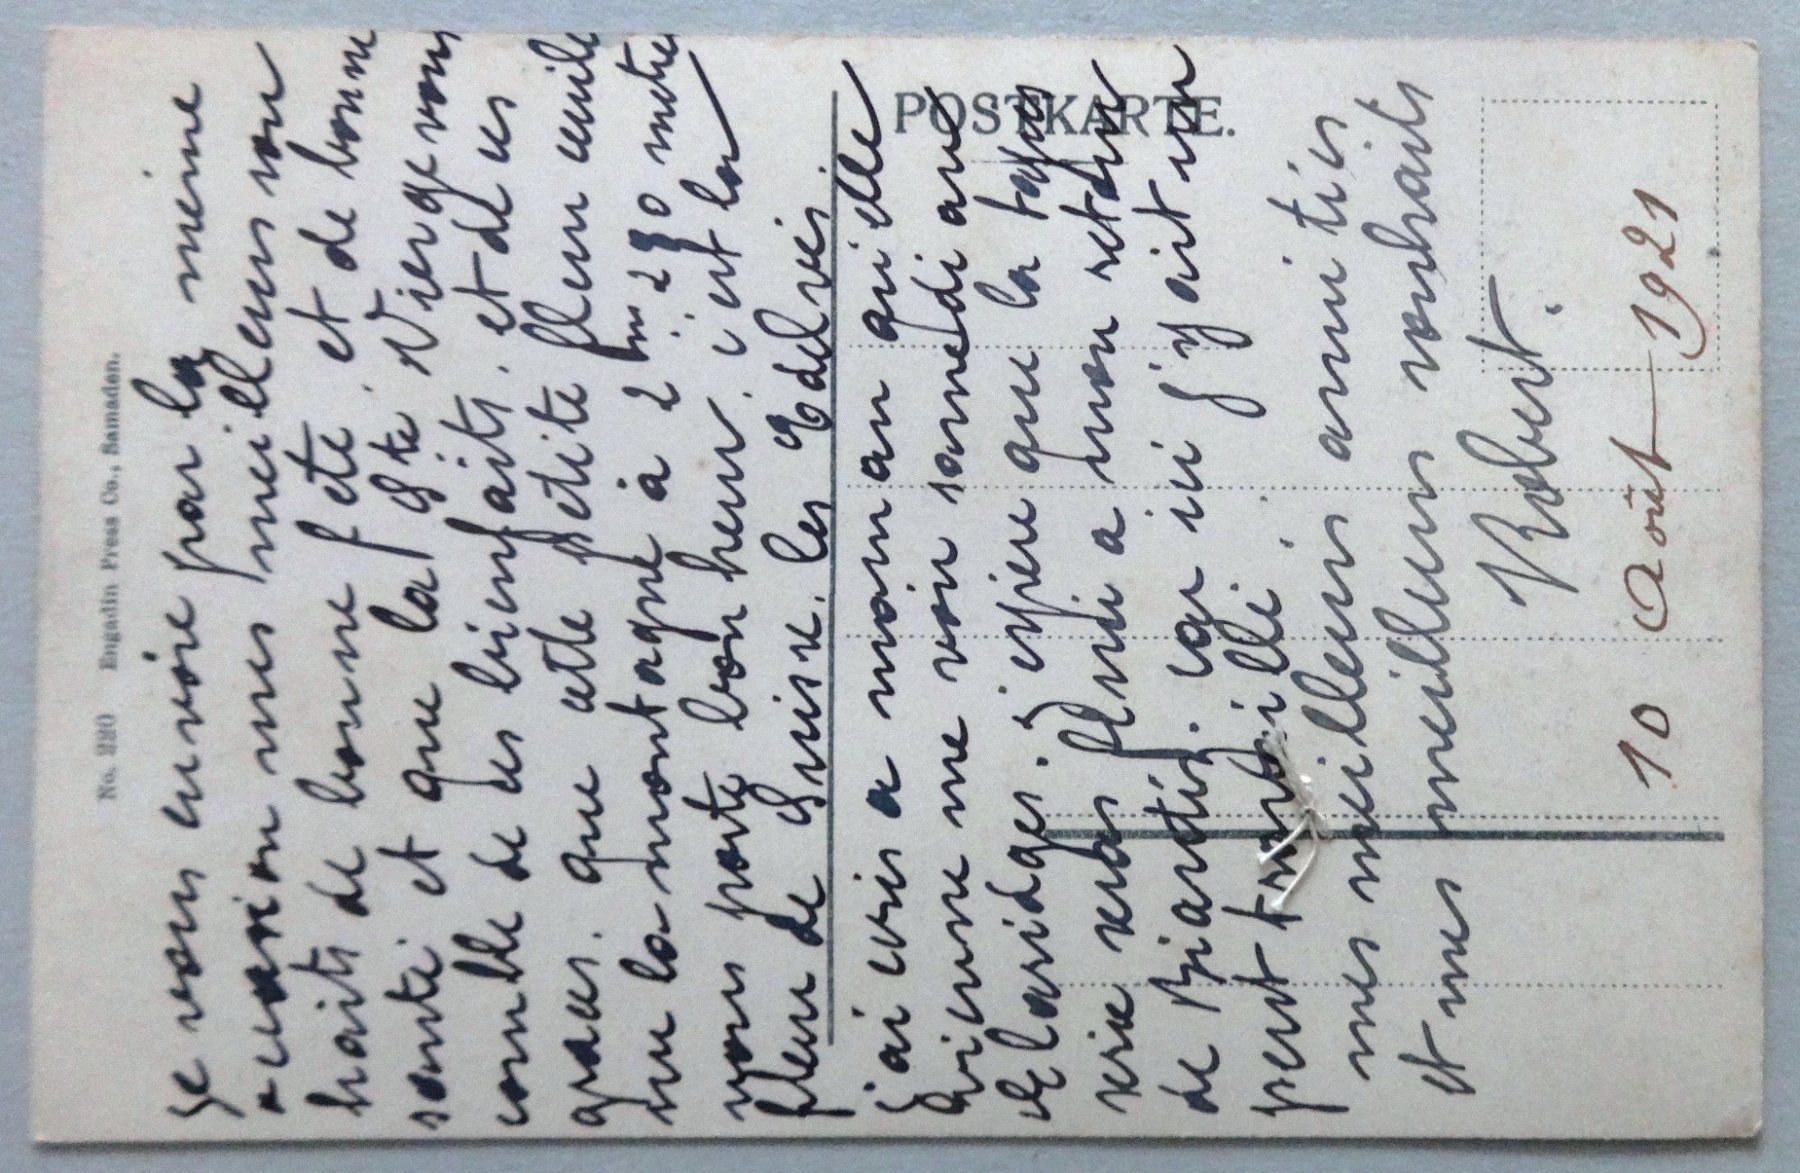 No. 220 Engadin Press Co., Samaden.
POSTKARTE.
Je vous envoie par la meme
occasion mes meilleurs sou
haits de bonne fete. et de bonne
sante et que la Ste Vierge vous
comble de ses bienfaits. et de ses
graces. que cette petite fleur cueilli
sur la montagne à 2m 230 metres
vous porte bonheur. c'est la
fleur de Suisse. les Edelveis
j'ai ecris a maman qu'elle
vienne me voir samedi au
Claridge. j'espere que la
sera plus a mon retour
de Biarritz. car ici j'y ait un
peut
mes meilleurs amities
et mes meilleurs souhaits
Robert.
10 Août 1921